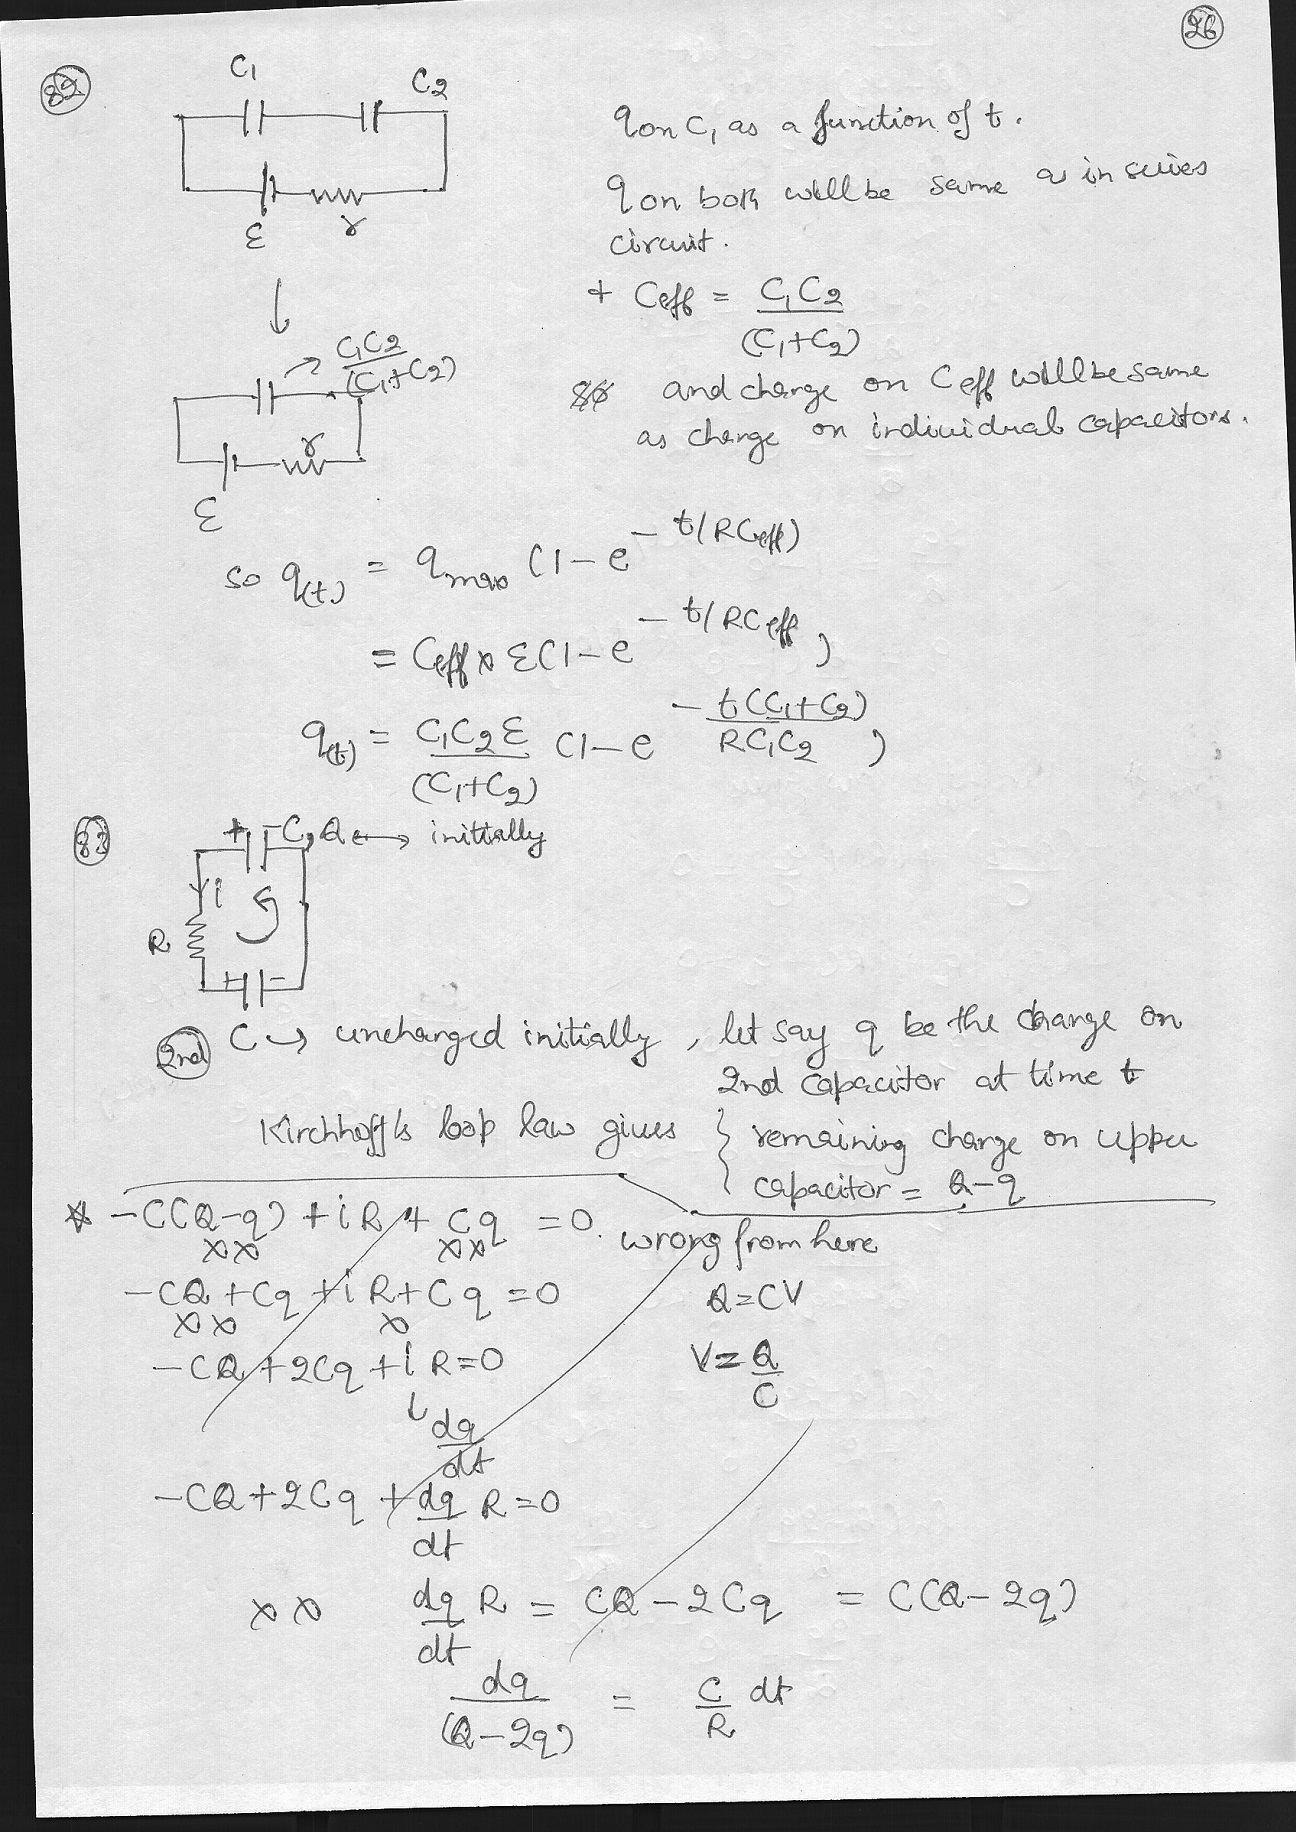 26
82
C1 C2
q on C1 as a function of t.
q on both will be same as in series
circuit.
ε r
+ Ceff = C1C2/(C1+C2)
C1C2/(C1+C2)
and charge on Ceff will be same
as charge on individual capacitors.
r
ε
so q(t) = qmax (1-e^-t/RCeff)
= Ceff x ε(1-e^-t/RCeff)
q(t) = C1C2ε/(C1+C2) (1-e^-t(C1+C2)/RC1C2)
83
+ - C, Q ⟷ initially
i
R
+ -
2nd C → uncharged initially, let say q be the charge on
2nd capacitor at time t
Kirchhoff's loop law gives { remaining charge on upper
capacitor = Q-q
-C(Q-q) + iR + Cq = 0. wrong from here
xx xx
-CQ + Cq + iR + Cq = 0 Q = CV
xx x
-CQ + 2Cq + iR = 0 V = Q/C
↓ dq/dt
-CQ + 2Cq + dq/dt R = 0
xx dq/dt R = CQ - 2Cq = C(Q-2q)
dq/(Q-2q) = C/R dt